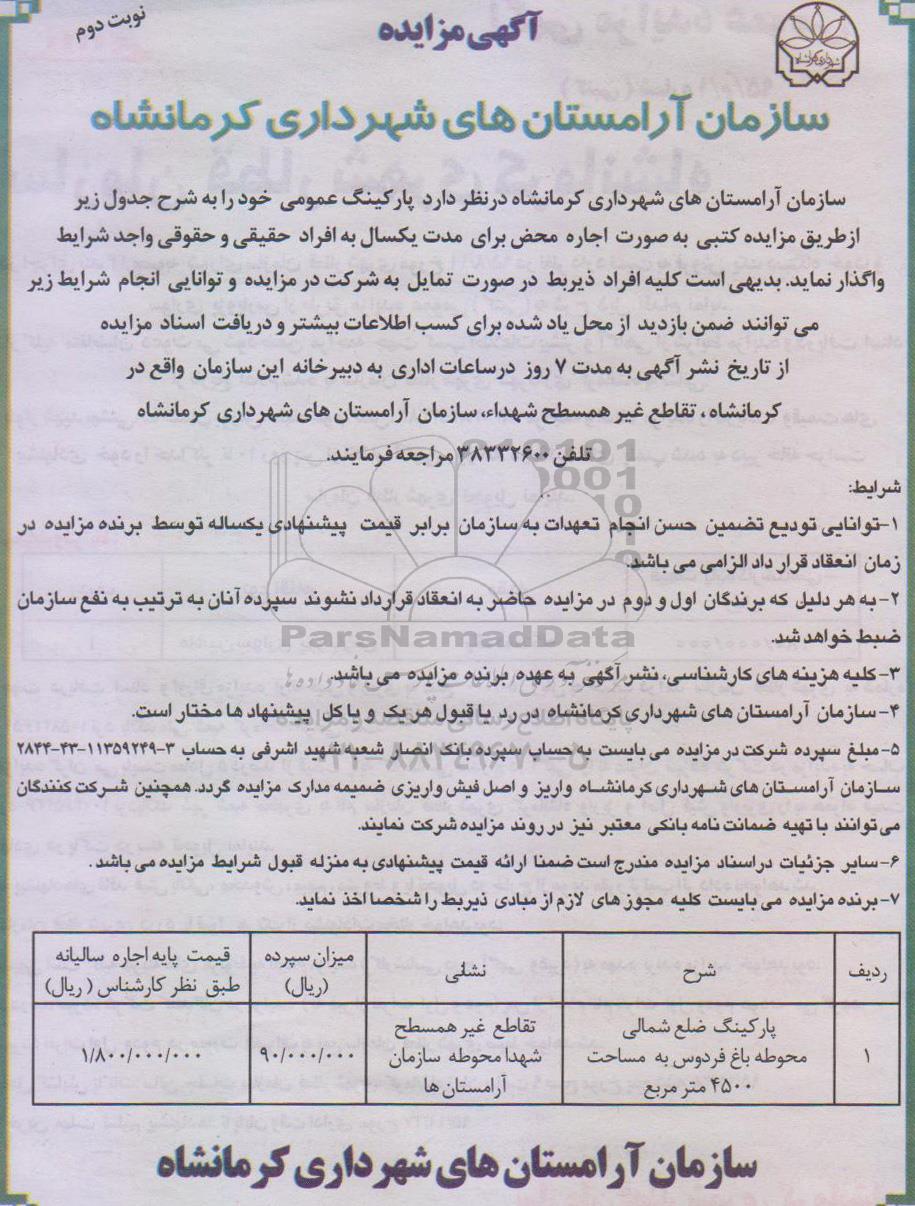 نوبت دوم
آگهی مزایده
سازمان آرامستان های شهرداری کرمانشاه
سازمان آرامستان های شهرداری کرمانشاه درنظر دارد پارکینگ عمومی خود را به شرح جدول زیر
ازطریق مزایده کتبی به صورت اجاره محض برای مدت یکسال به افراد حقیقی و حقوقی واجد شرایط
واگذار نماید. بدیهی است کلیه افراد ذیربط در صورت تمایل به شرکت در مزایده و توانایی انجام شرایط زیر
می توانند ضمن بازدید از محل یاد شده برای کسب اطلاعات بیشتر و دریافت اسناد مزایده
از تاریخ نشر آگهی به مدت ۷ روز درساعات اداری به دبیرخانه این سازمان واقع در
کرمانشاه ، تقاطع غیر همسطح شهداء، سازمان آرامستان های شهرداری کرمانشاه
تلفن ۳۸۳۳۲۶۰۰ مراجعه فرمایند.
شرایط:
۱-توانایی تودیع تضمین حسن انجام تعهدات به سازمان برابر قیمت پیشنهادی یکساله توسط برنده مزایده در
زمان انعقاد قرار داد الزامی می باشد.
۲- به هر دلیل که برندگان اول و دوم در مزایده حاضر به انعقاد قرارداد نشوند سپرده آنان به ترتیب به نفع سازمان
ضبط خواهد شد.
ParsNamadData
۳-کلیه هزینه های کارشناسی، نشر آگهی به عهده برنده مزایده می باشد.
۴-سازمان آرامستان های شهرداری کرمانشاه در رد یا قبول هر یک و یا کل پیشنهاد ها مختار است.
۵-مبلغ سپرده شرکت در مزایده می بایست به حساب سپرده بانک انصار شعبه شهید اشرفی به حساب ۳-۱۱۳۵۹۲۴۹-۴۳-۲۸۴۴
سازمان آرامستان های شهرداری کرمانشاه واریز و اصل فیش واریزی ضمیمه مدارک مزایده گردد. همچنین شرکت کنندگان
می توانند با تهیه ضمانت نامه بانکی معتبر نیز در روند مزایده شرکت نمایند.
۶-سایر جزئیات دراسناد مزایده مندرج است ضمنا ارائه قیمت پیشنهادی به منزله قبول شرایط مزایده می باشد .
۷-برنده مزایده می بایست کلیه مجوز های لازم از مبادی ذیربط را شخصا اخذ نماید.
ردیف | شرح | نشانی | میزان سپرده (ریال) | قیمت پایه اجاره سالیانه طبق نظر کارشناس (ریال)
۱ | پارکینگ ضلع شمالی محوطه باغ فردوس به مساحت ۴۵۰۰ متر مربع | تقاطع غیر همسطح شهدا محوطه سازمان آرامستان ها | ۹۰/۰۰۰/۰۰۰ | ۱/۸۰۰/۰۰۰/۰۰۰
سازمان آرامستان های شهرداری کرمانشاه